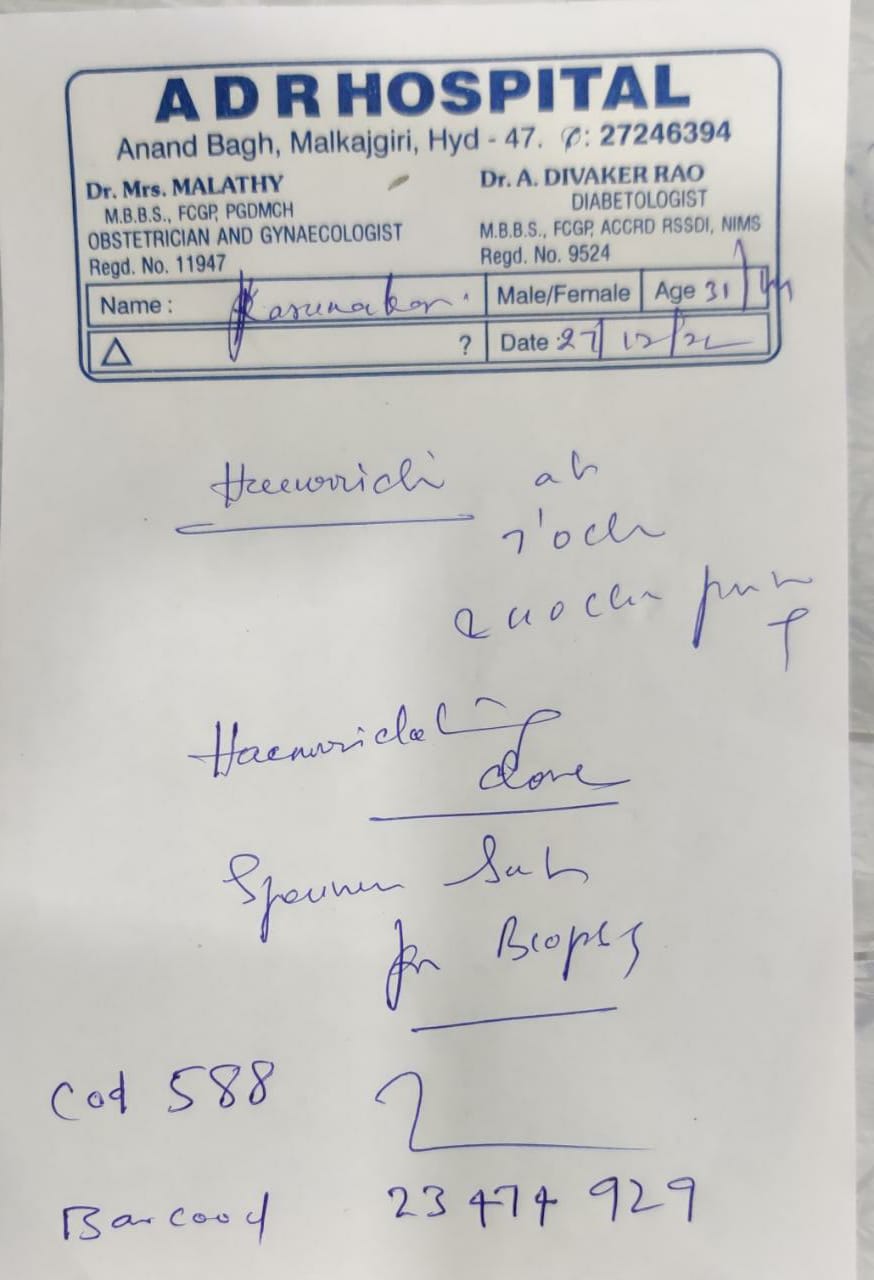 ADR HOSPITAL
Anand Bagh, Malkajgiri, Hyd - 47. ✆: 27246394
Dr. Mrs. MALATHY
M.B.B.S., FCGP, PGDMCH
OBSTETRICIAN AND GYNAECOLOGIST
Regd. No. 11947
Dr. A. DIVAKER RAO
DIABETOLOGIST
M.B.B.S., FCGP, ACCRD RSSDI, NIMS
Regd. No. 9524
Name : Karunakar Male/Female Age 31/M
△ ? Date : 27/12/22
at
done
for Biopsy
Cod 588
Barcood 23474929